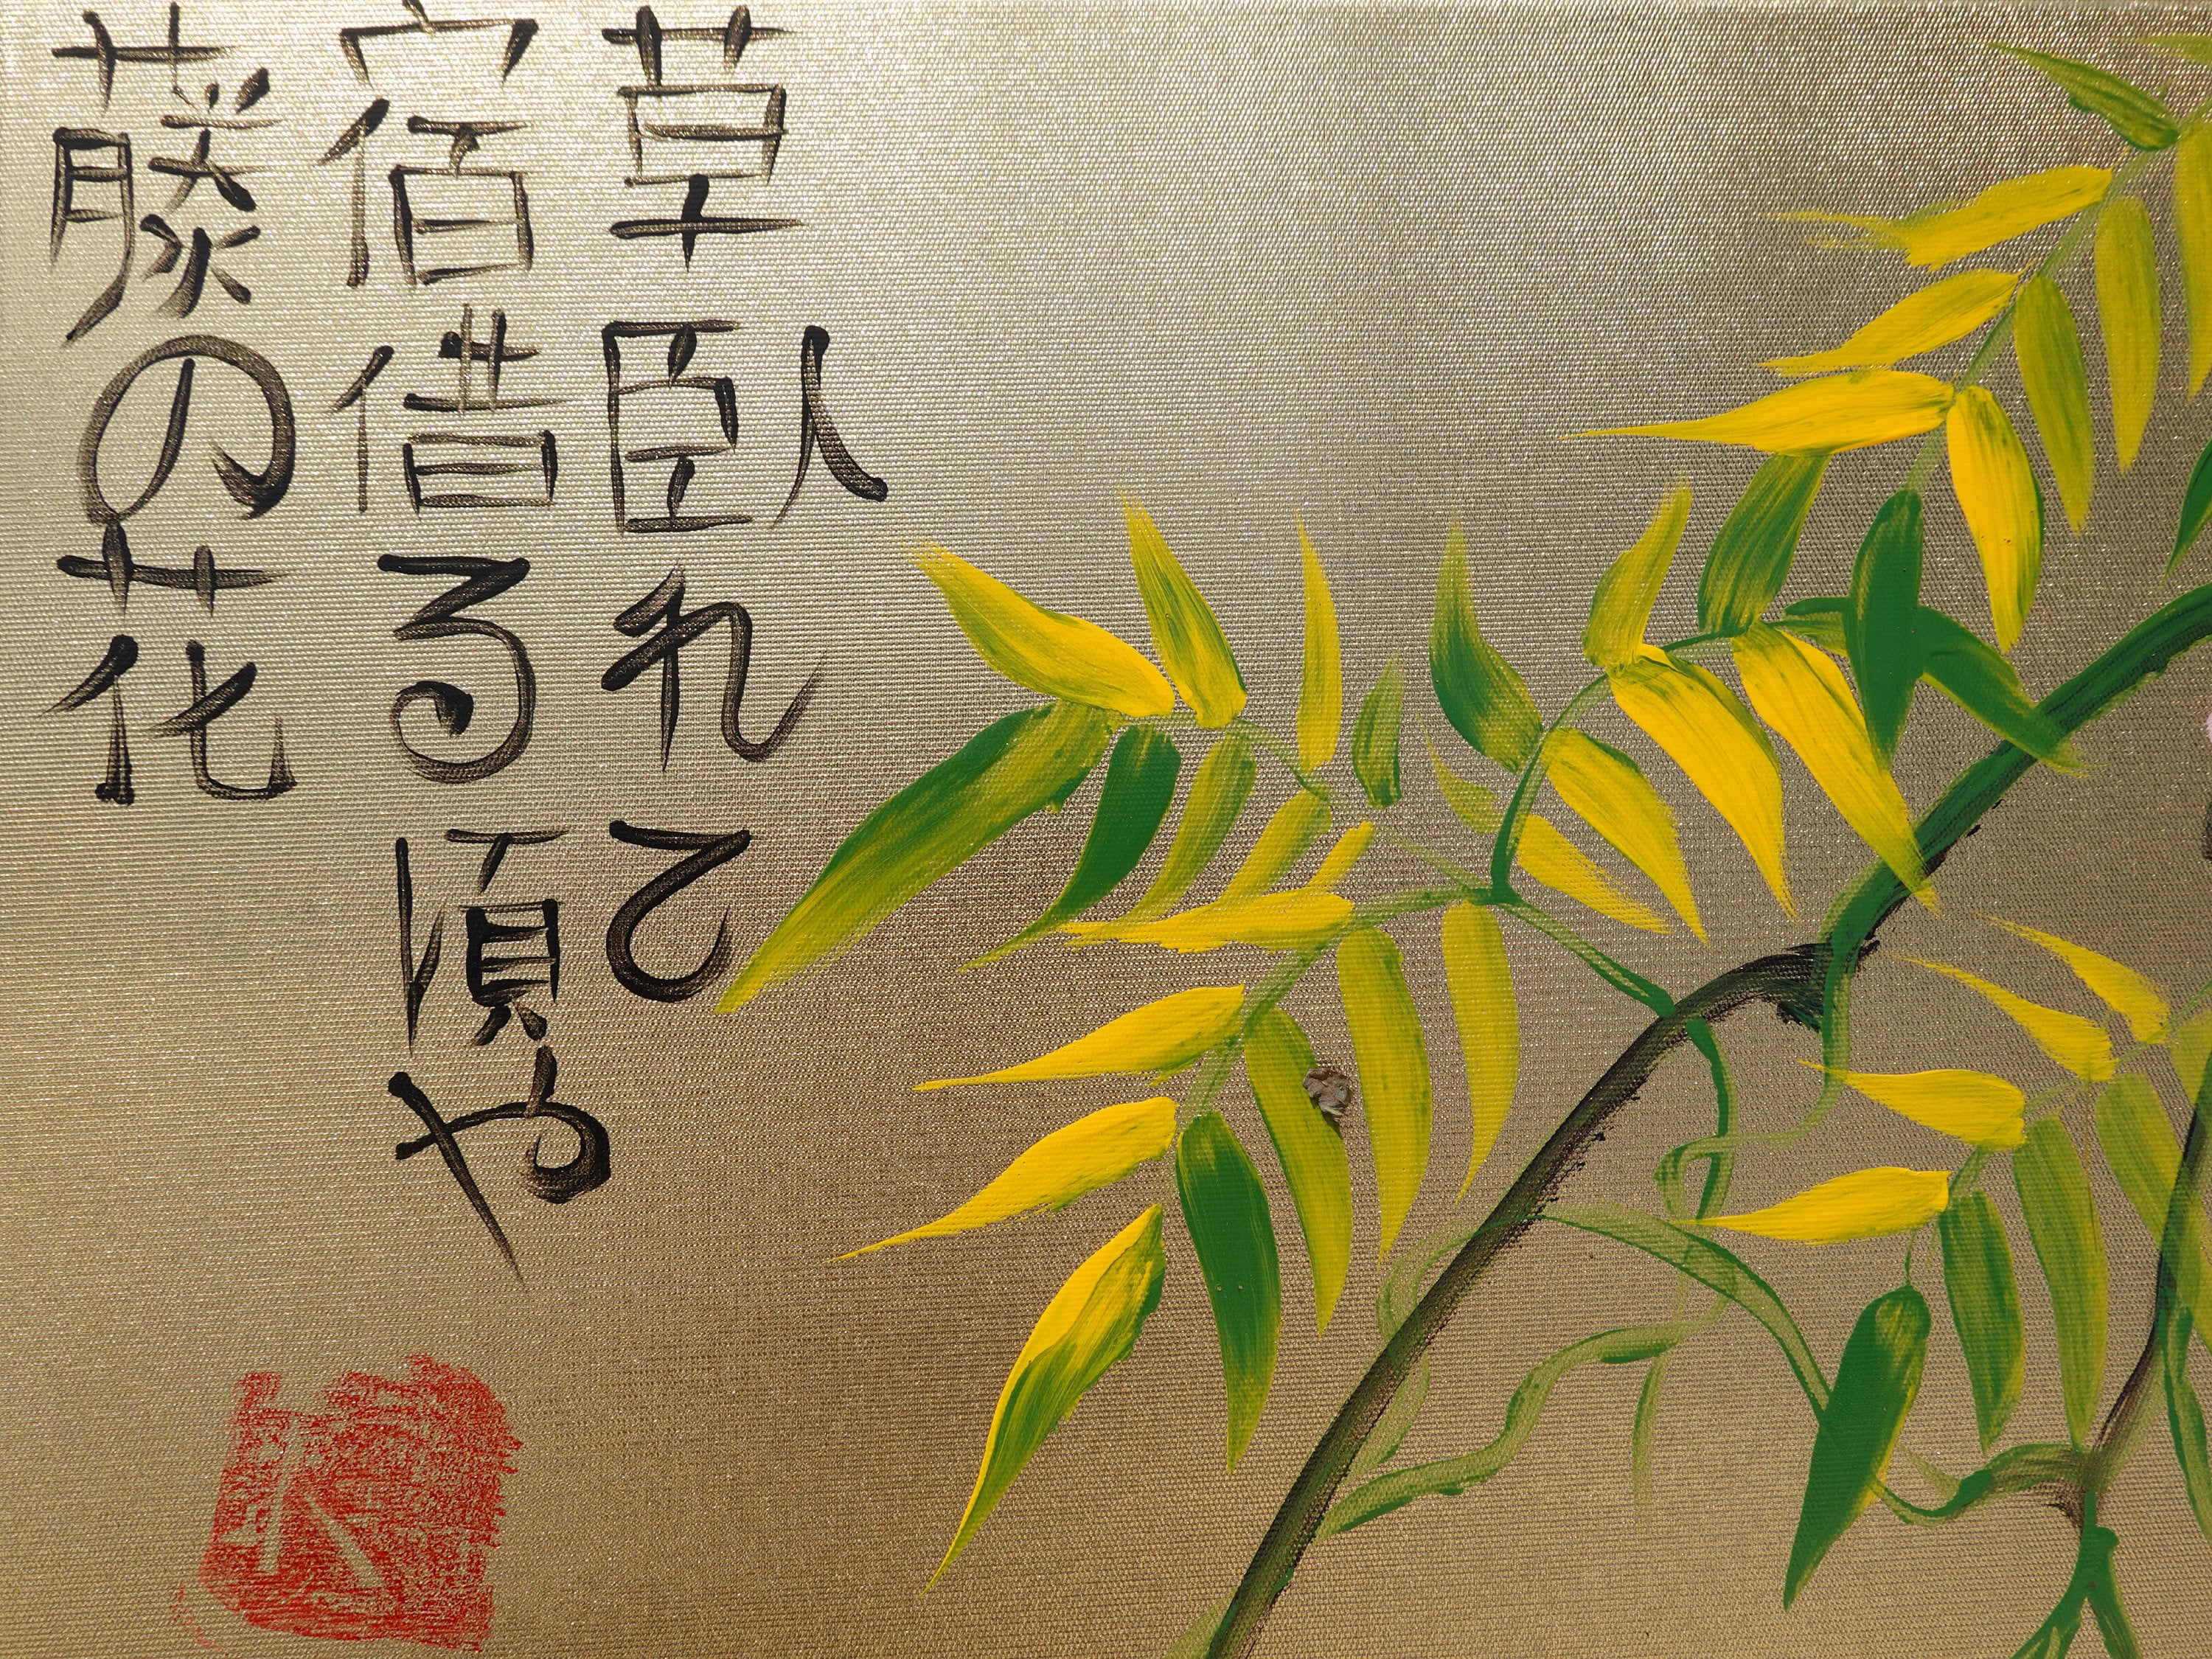 草臥れて
宿借る頃や
藤の花